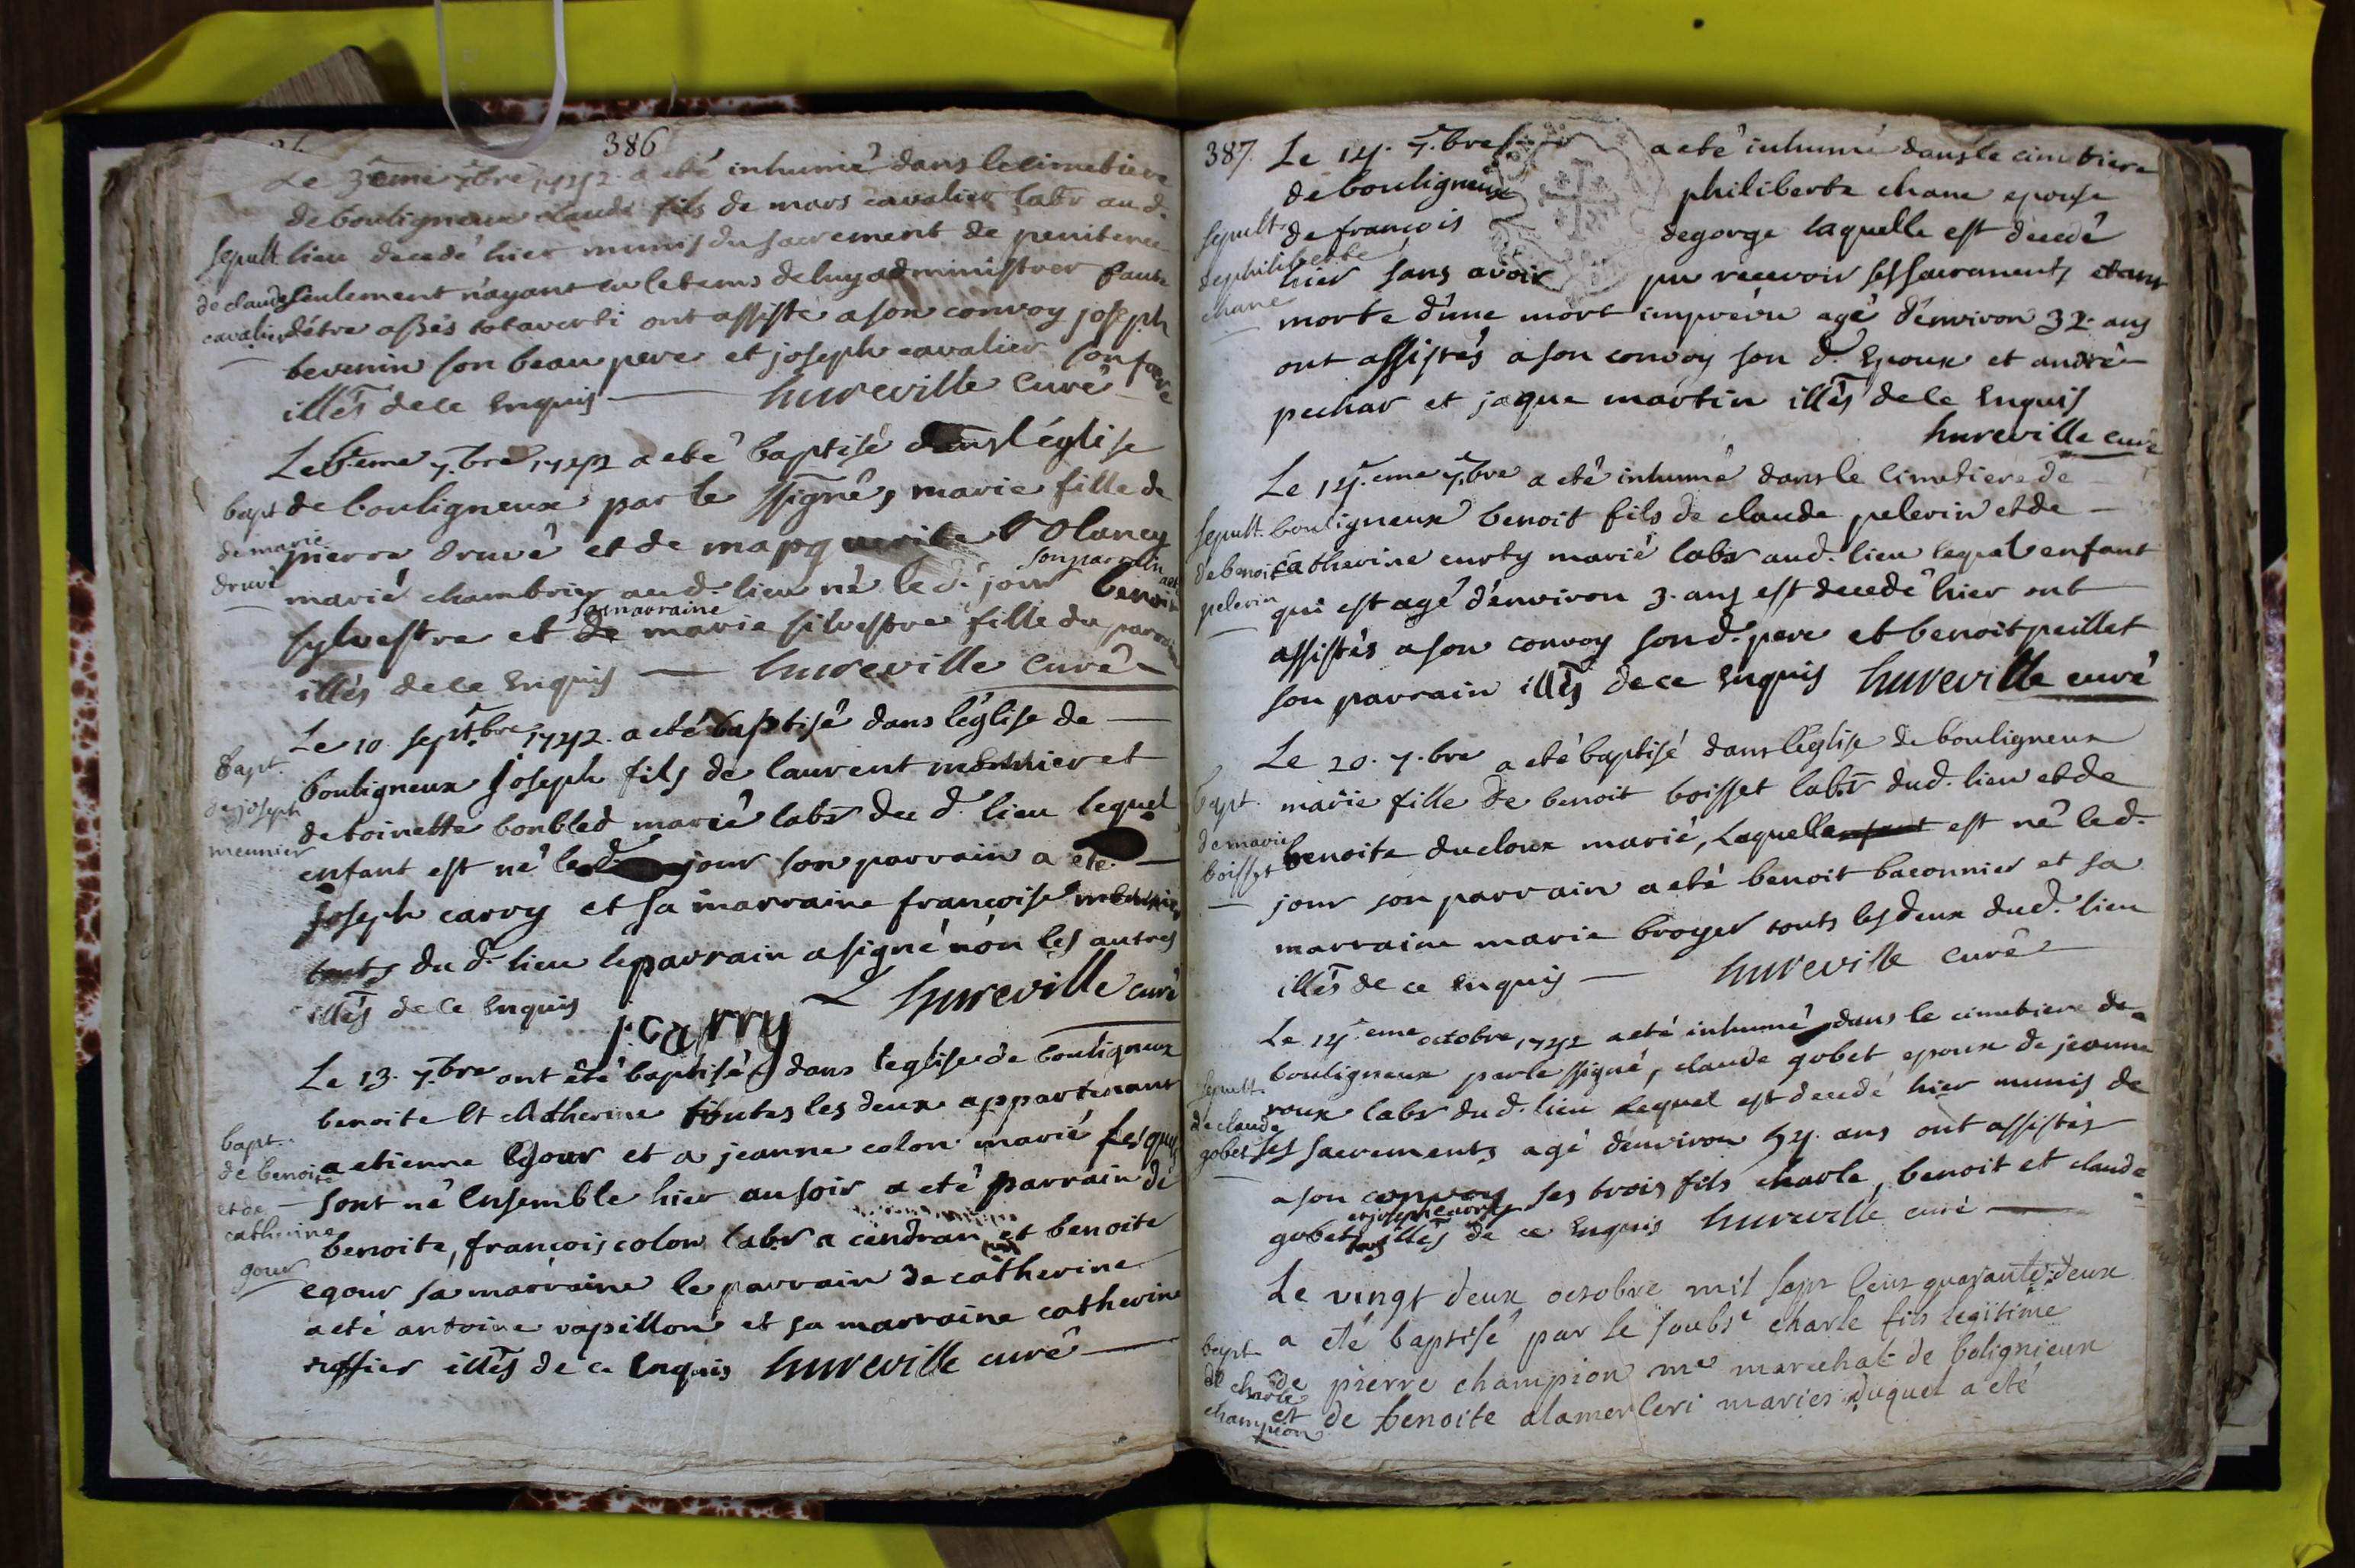 386
Le 3eme 7bre 1742 a eté inhumé dans le cimetiere
de bouligneux claude fils de mars cavalier labr aud.
sepult lieu decedé hier munis du sacrement de penitence
de claude seulement n'ayant eu le tems de luy administrer faute
cavalier d'étre assés tot averti ont assisté a son convoy joseph
bevenin son beau pere et joseph cavalier son frere
illes de ce Enquis hureville Curé
Le 6.eme 7.bre 1742 a eté baptisé dans l'église
bapt de bouligneux par le ssigné, marie fille de
de marie pierre druvé et de
son parrain
druvé marié chambrier aud. lieu né le d. jour benoit
sa marraine
sylvestre et de marie silvestre fille du parrain
illes de ce Enquis hureville curé
Le 10 septbre 1742. a eté baptisé dans l'église de
bapt. bouligneux joseph fils de laurent meunier et
de joseph
de toinette boubled marié labr du d. lieu lequel
meunier
enfant est né le d. jour son parrain a eté
joseph carry et sa marraine francoise meunier
touts du d. lieu le parrain a signé non les autres
illes de ce Enquis hureville curé
j: carry
Le 13. 7.bre ont été baptisés dans l'eglise de bouligneux
benoite et catherine toutes les deux appartenant
bapt. a etienne Egour et a jeanne colon marié lesquels
de benoite sont né Ensemble hier au soir a eté parrain de
et de
catherine benoite, francois colon labr a cendran et benoite
gour
egour sa marraine le parrain de catherine
a eté antoine vapillon et sa marraine catherine
ruffier illes de ce Enquis hureville curé
387. Le 14. 7.bre a eté inhumé dans le cimetiere
de bouligneux philiberte chane epouse
sepult. de francois degorge laquelle est decedé
de philiberte hier sans avoir pu recevoir ses sacrements etant
chane
morte d'une mort imprévu agé d'environ 32 ans
ont assistés a son convoy son d. Epoux et andré
pechar et jaque martin illes de ce Enquis
hureville curé
Le 14.eme 7.bre a eté inhumé dans le cimetiere de
sepult. bouligneux benoit fils de claude pelerin et de
de benoit catherine curty marié labr aud. lieu lequel enfant
pelerin qui est agé d'environ 3. ans est decedé hier ont
assistés a son convoy son d. pere et benoit peillet
son parrain illes de ce Enquis hureville curé
Le 20. 7.bre a eté baptisé dans l'église de bouligneux
bapt. marie fille de benoit boisset labr dud. lieu et de
de marie benoite ducloux marié, Laquelle est né le d.
boisset
jour son parrain a eté benoit baconnier et sa
marraine marie broyer touts les deux dud. lieu
illes de ce Enquis hureville curé
Le 14.eme octobre 1742 a eté inhumé dans le cimetiere de
sepult. bouligneux par le ssigné, claude gobet epoux de jeanne
de claude roux labr du d. lieu Lequel est decedé hier munis de
gobet ses sacrements agé d'environ 54. ans ont assistés
a son convoy ses trois fils charle, benoit et claude
gobet touts illes de ce Enquis hureville curé
Le vingt deux octobre mil sept cens quarante deux
bapt. a eté baptisé par le soubs.é charle fils legitime
de charle de pierre champion me marechal de bolignieux
champion et de benoite alamerleri mariés duquel a eté